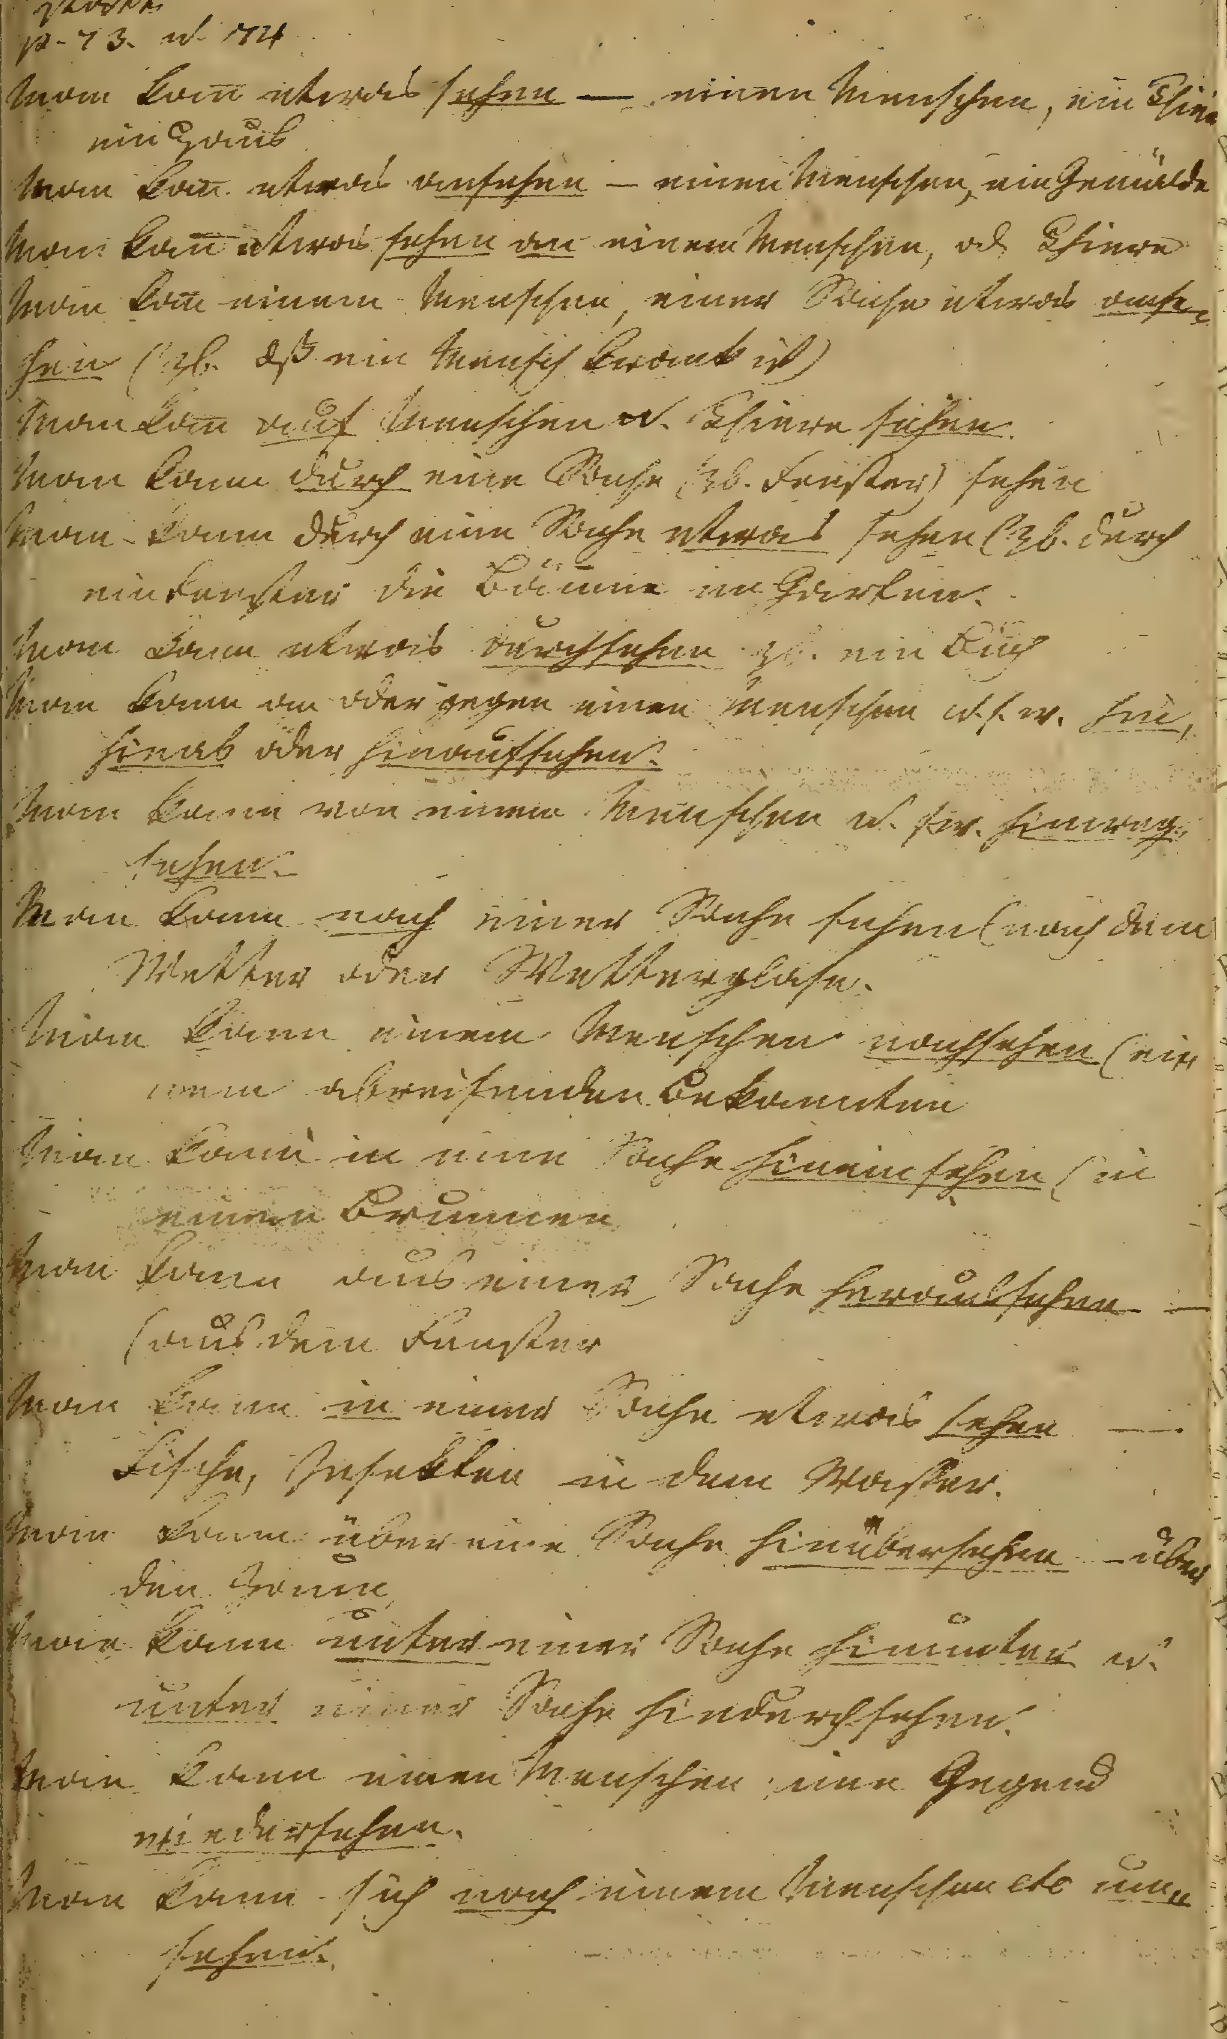 p. 73. u. 74
Man kan̅ etwas sehen — einen Menschen, ein Thier
ein Haus
Man kan̅ etwas ansehen — einen Menschen, ein Gemälde
Man kan̅ etwas sehen an einem Menschen, od. Thiere
Man kan̅ einem Menschen, einer Sache etwas anse-
hen (zb. dß ein Mensch krank ist)
Man kan̅ auf Menschen u. Thiere sehen.
Man kann durch eine Sache (zb. Fenster) sehen
Man kann durch eine Sache etwas sehen (zb. durch
ein Fenster die Bäume im Garten.
Man kann etwas durchsehen zb. ein Buch
Man kann an oder gegen einen Menschen u.s.w. hin,
hinab oder hinaufsehen.
Man kann von einem Menschen u. sw. hinweg,
sehen.
Man kann nach einer Sache sehen (nach dem
Wetter oder Wetterglase.
Man kann einem Menschen nachsehen (ei,
nem abreisenden Bekannten
Man kann in eine Sache hineinsehen (in
einen Brunnen
Man kann aus einer Sache heraussehen —
(aus dem Fenster
Man kann in einer Sache etwas sehen —
Fische, Insekten in dem Wasser.
Man kann über eine Sache hinübersehen - über
den Zaun
Man kann unter einer Sache hinunter u.
unter einer Sache hindurchsehen.
Man kann einen Menschen, eine Gegend
wiedersehen.
Man kann sich nach einem Menschen etc um,
sehen.